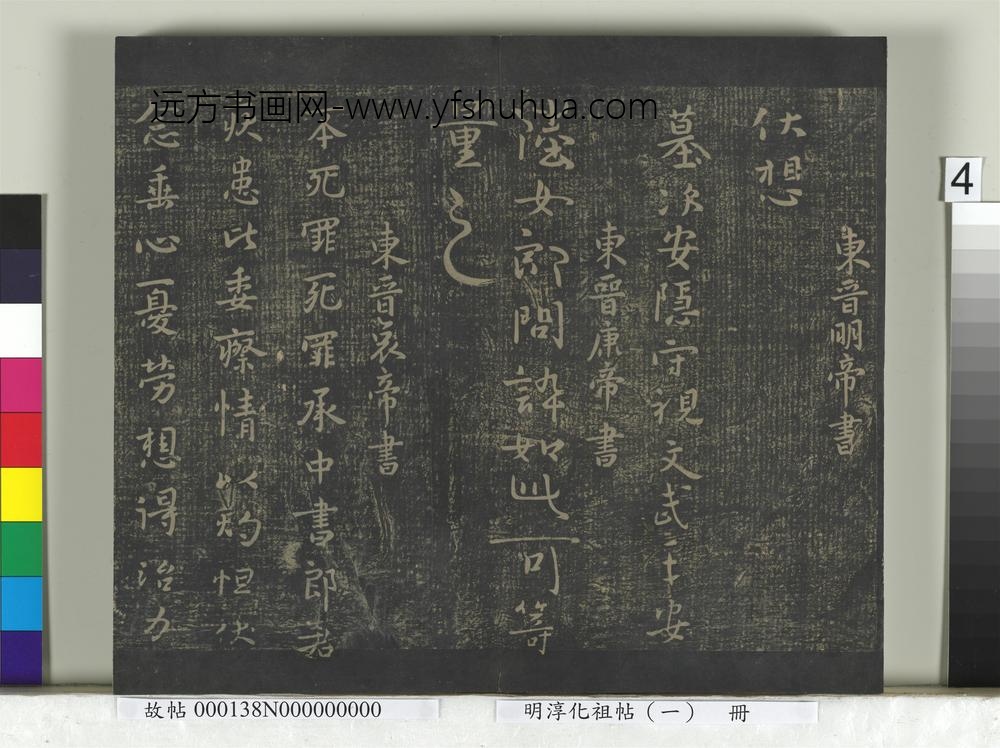 远方书画网-www.yfshuhua.com
4
伏想
東晉明帝書
墓次安隱守視文武三十安
東晉康帝書
陸女郎問訃如此可等
重之
東晉哀帝書
本死罪死罪承中書郎君
疾患此委瘵情以灼怛伏
念垂心憂勞想得治力
故帖 000138N000000000
明淳化祖帖（一） 冊